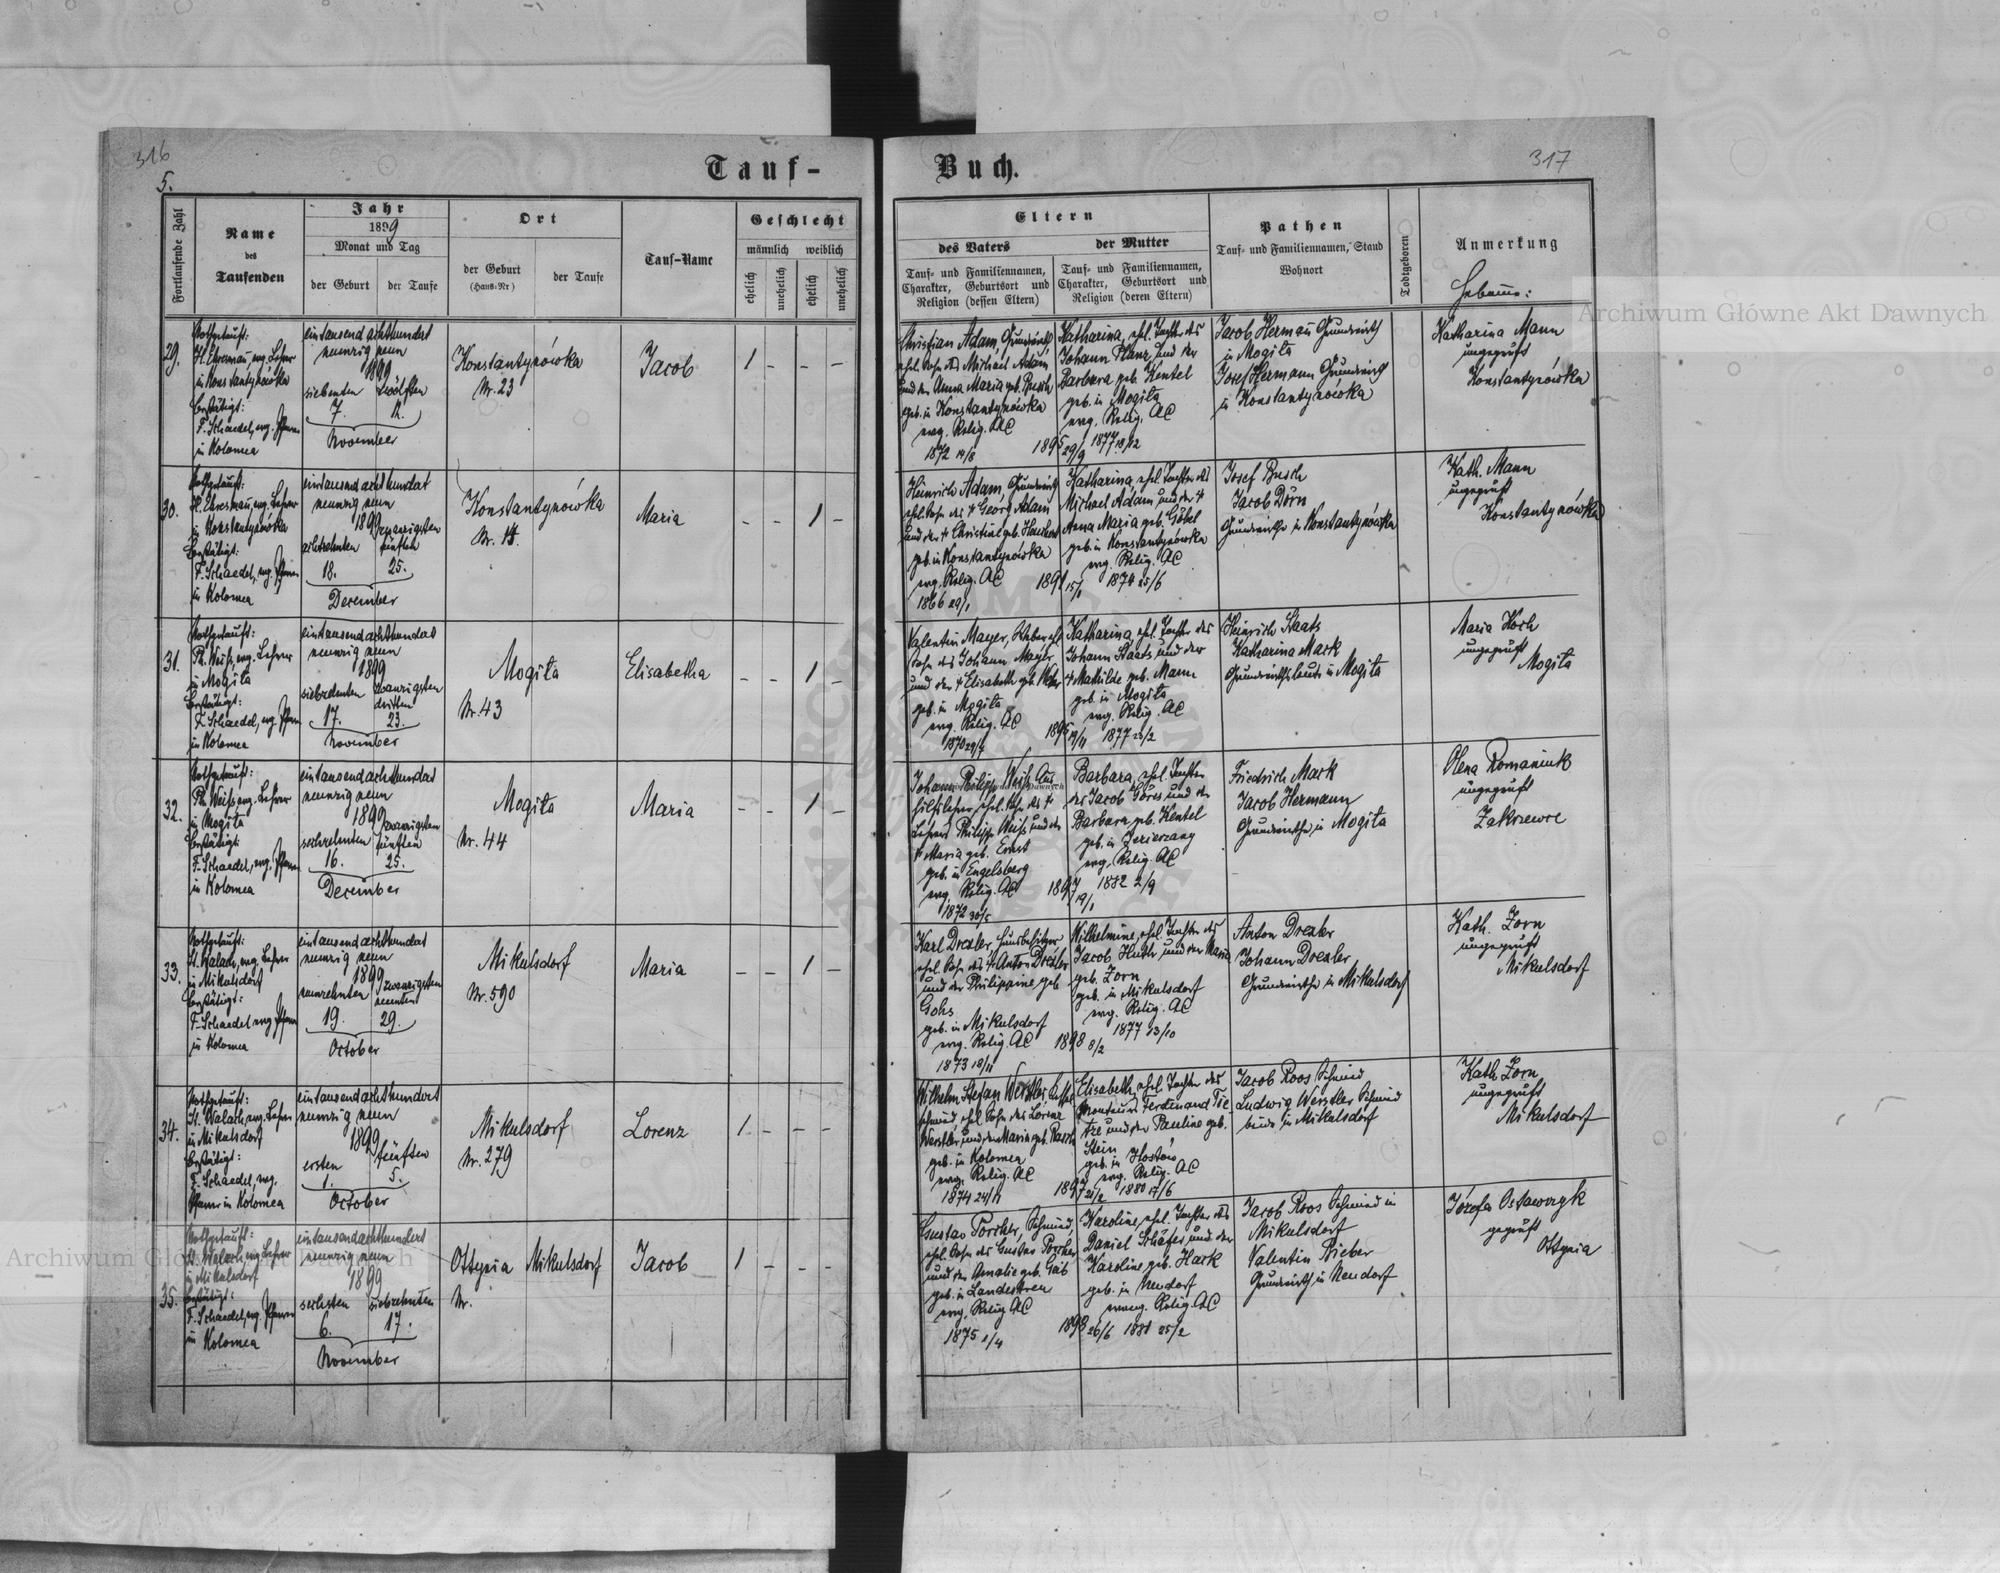 316
5.
Tauf-
Fortlaufende Zahl
Name
des
Taufenden
Jahr
1899
Monat und Tag
der Geburt
der Taufe
Ort
der Geburt
(Haus-Nr)
der Taufe
Tauf-Name
Geschlecht
männlich weiblich
ehelich
unehelich
ehelich
unehelich
29.
Nothgetauft:
in Konstantynówka
Bestätigt:
F. Schaedel, evg. Pfarrer
in Kolomea
eintausend achthundert
neunzig neun
1899
siebenten zwölften
7. 12.
November
Konstantynówka
Nr. 23
Jacob
1 - - -
30.
Nothgetauft:
in Konstantynówka
Bestätigt:
F. Schaedel, evg. Pfarrer
in Kolomea
eintausend achthundert
neunzig neun
1899
achtzehnten
zwanzigsten
fünften
18. 25.
December
Konstantynówka
Maria
- - 1 -
31.
Nothgetauft:
Ph. Weiß, evg. Lehrer
in Mogiła
Bestätigt:
F. Schaedel, evg. Pfarrer
in Kolomea
eintausend achthundert
neunzig neun
1899
siebzehnten
zwanzigsten
dritten
17. 23.
November
Mogiła
Nr. 43
Elisabetha
- - 1 -
32.
Nothgetauft:
Ph. Weiß, evg. Lehrer
in Mogiła
Bestätigt:
F. Schaedel, evg. Pfarrer
in Kolomea
eintausend achthundert
neunzig neun
1899
sechzehnten
zwanzigsten
fünften
16. 25.
December
Mogiła
Nr. 44
Maria
- - 1 -
33.
Nothgetauft:
St. Walach, evg. Lehrer
in Mikulsdorf
Bestätigt:
F. Schaedel evg. Pfarrer
in Kolomea
eintausend achthundert
neunzig neun
1899
neunzehnten
zwanzigsten
neunten
19. 29.
October
Mikulsdorf
Nr. 590
Maria
- - 1 -
34.
Nothgetauft:
St. Walach, evg. Lehrer
in Mikulsdorf
Bestätigt:
F. Schaedel, evg.
Pfarrer in Kolomea
eintausend achthundert
neunzig neun
1899
ersten fünften
1. 5.
October
Mikulsdorf
Nr. 279
Lorenz
1 - - -
35.
Nothgetauft:
St. Walach, evg. Lehrer
in Mikulsdorf
Bestätigt:
F. Schaedel, evg. Pfarrer
in Kolomea
eintausend achthundert
neunzig neun
1899
sechsten siebzehnten
6. 17.
November
Ottynia
Nr.
Mikulsdorf
Jacob
1 - - -
Buch.
317
Eltern
des Vaters
der Mutter
Tauf- und Familiennamen,
Charakter, Geburtsort und
Religion (dessen Eltern)
Tauf- und Familiennamen,
Charakter, Geburtsort und
Religion (deren Eltern)
Pathen
Tauf- und Familiennamen, Stand
Wohnort
Todtgeboren
Anmerkung
Hebamme:
Christian Adam, Grundwirth
ehel. Sohn des Michael Adam
und der Anna Maria geb.
geb. in Konstantynówka
evg. Relig. AC
1872 14/8
1895 29/9
Katharina, ehel. Tochter des
Johann Pflanz und der
Barbara geb. Kentel
geb. in Mogiła
evg. Relig. AC
1877 18/12
Jacob Hermann Grundwirth
in Mogiła
Josef Hermann Grundwirth
in Konstantynówka
Katharina Mann
ungeprüft
Konstantynówka
Heinrich Adam, Grundwirth
ehel. Sohn des † Georg Adam
und der † Christine geb.
geb. in Konstantynówka
evg. Relig. AC
1866 29/1
Katharina, ehel. Tochter des
Michael Adam und der †
Anna Maria geb. Göbel
geb. in Konstantynówka
evg. Relig. AC
1874 25/6
Josef Busch
Jacob Dörn
Grundwirthe in Konstantynówka
Kath. Mann
ungeprüft
Konstantynówka
Valentin Mayer, Weber ehel.
Sohn des Johann Mayer
und der † Elisabeth geb.
geb. in Mogiła
evg. Relig. AC
1870 29/7
1895 19/11
Katharina, ehel. Tochter des
Johann Staats und der
† Mathilde geb. Mann
geb. in Mogiła
evg. Relig. AC
1877 23/2
Heinrich Staats
Katharina Mark
Grundwirthsleute in Mogiła
Maria Koch
ungeprüft
Mogiła
Johann Philipp Weiß Aus-
hilfslehrer, ehel. Sohn des †
Lehrers Philipp Weiß und der
† Maria geb. Ernst
geb. in Engelsberg
evg. Relig. AC
1872 30/5
1897 19/1
Barbara, ehel. Tochter
des Jacob Göres und der
Barbara geb. Kentel
geb. in Jezierzany
evg. Relig. AC
1882 2/9
Friedrich Mark
Jacob Hermann
Grundwirthe in Mogiła
Olena Romaniuk
ungeprüft
Zakrzewce
Karl Drexler, Hausbesitzer
ehel. Sohn des † Anton Drexler
und der Philippine geb
Gohs
geb. in Mikulsdorf
evg. Relig. AC
1873 18/11
1898 8/2
Wilhelmine, ehel. Tochter des
Jacob Huth und der Maria
geb. Zorn
geb. in Mikulsdorf
evg. Relig. AC
1877 13/10
Anton Drexler
Johann Drexler
Grundwirthe in Mikulsdorf
Kath. Zorn
ungeprüft
Mikulsdorf
Wilhelm Stefan Werstler
schmied, ehel. Sohn des Lorenz
Werstler und der Maria geb.
geb. in Kolomea
evg. Relig. AC
1874 24/11
1897 21/2
Elisabeth, ehel. Tochter des
Monteurs Ferdinand Tie-
tze und der Pauline geb.
Stein
geb. in Hostów
evg. Relig. AC
1880 17/6
Jacob Roos Schmied
Ludwig Werstler Schmied
beide in Mikulsdorf
Kath. Zorn
ungeprüft
Mikulsdorf
Gustav Porcher, Schmied,
ehel. Sohn des Gustav Porcher
und der Amalie geb.
geb. in Landestreu
evg. Relig. AC
1875 1/4
1898 26/6
Karoline, ehel. Tochter des
Daniel Schäfer und der
Karoline geb. Hark
geb. in Neudorf
evang. Relig. AC
1881 25/2
Jacob Roos Schmied in
Mikulsdorf
Valentin Bieber
Grundwirth in Neudorf
Józefa Ostawczyk
geprüft
Ottynia
Archiwum Główne Akt Dawnych
Archiwum Główne Akt Dawnych